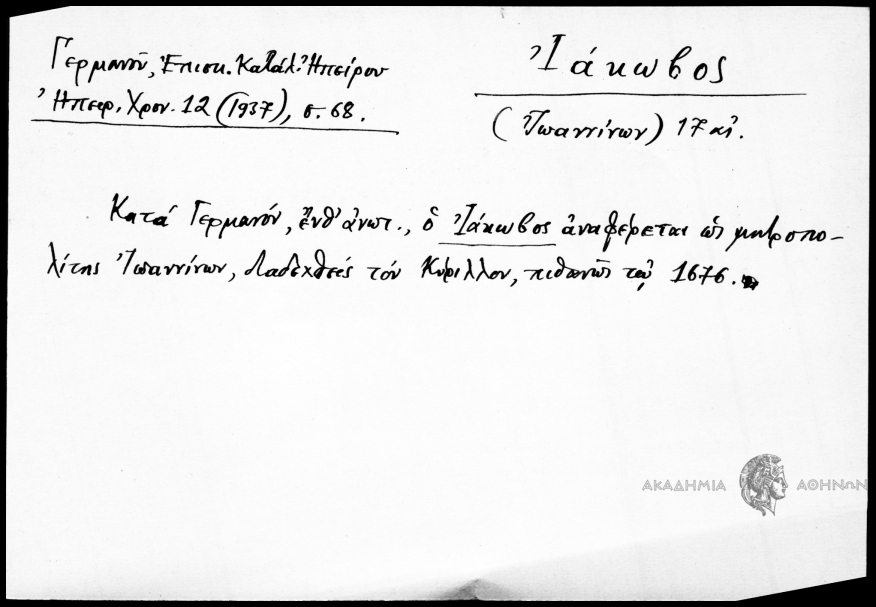 Γερμανοῦ, Ἐπισκ. Κατάλ. Ἠπείρου
Ἠπειρ. Χρον. 12 (1937), σ. 68.
Ἰάκωβος
(Ἰωαννίνων) 17 αἰ.
Κατά Γερμανόν, ἔνθ' ἀνωτ., ὁ Ἰάκωβος ἀναφέρεται ὡς μητροπο-
λίτης Ἰωαννίνων, διαδεχθείς τόν Κύριλλον, πιθανῶς τῷ 1676.
ΑΚΑΔΗΜΙΑ ΑΘΗΝΩΝ